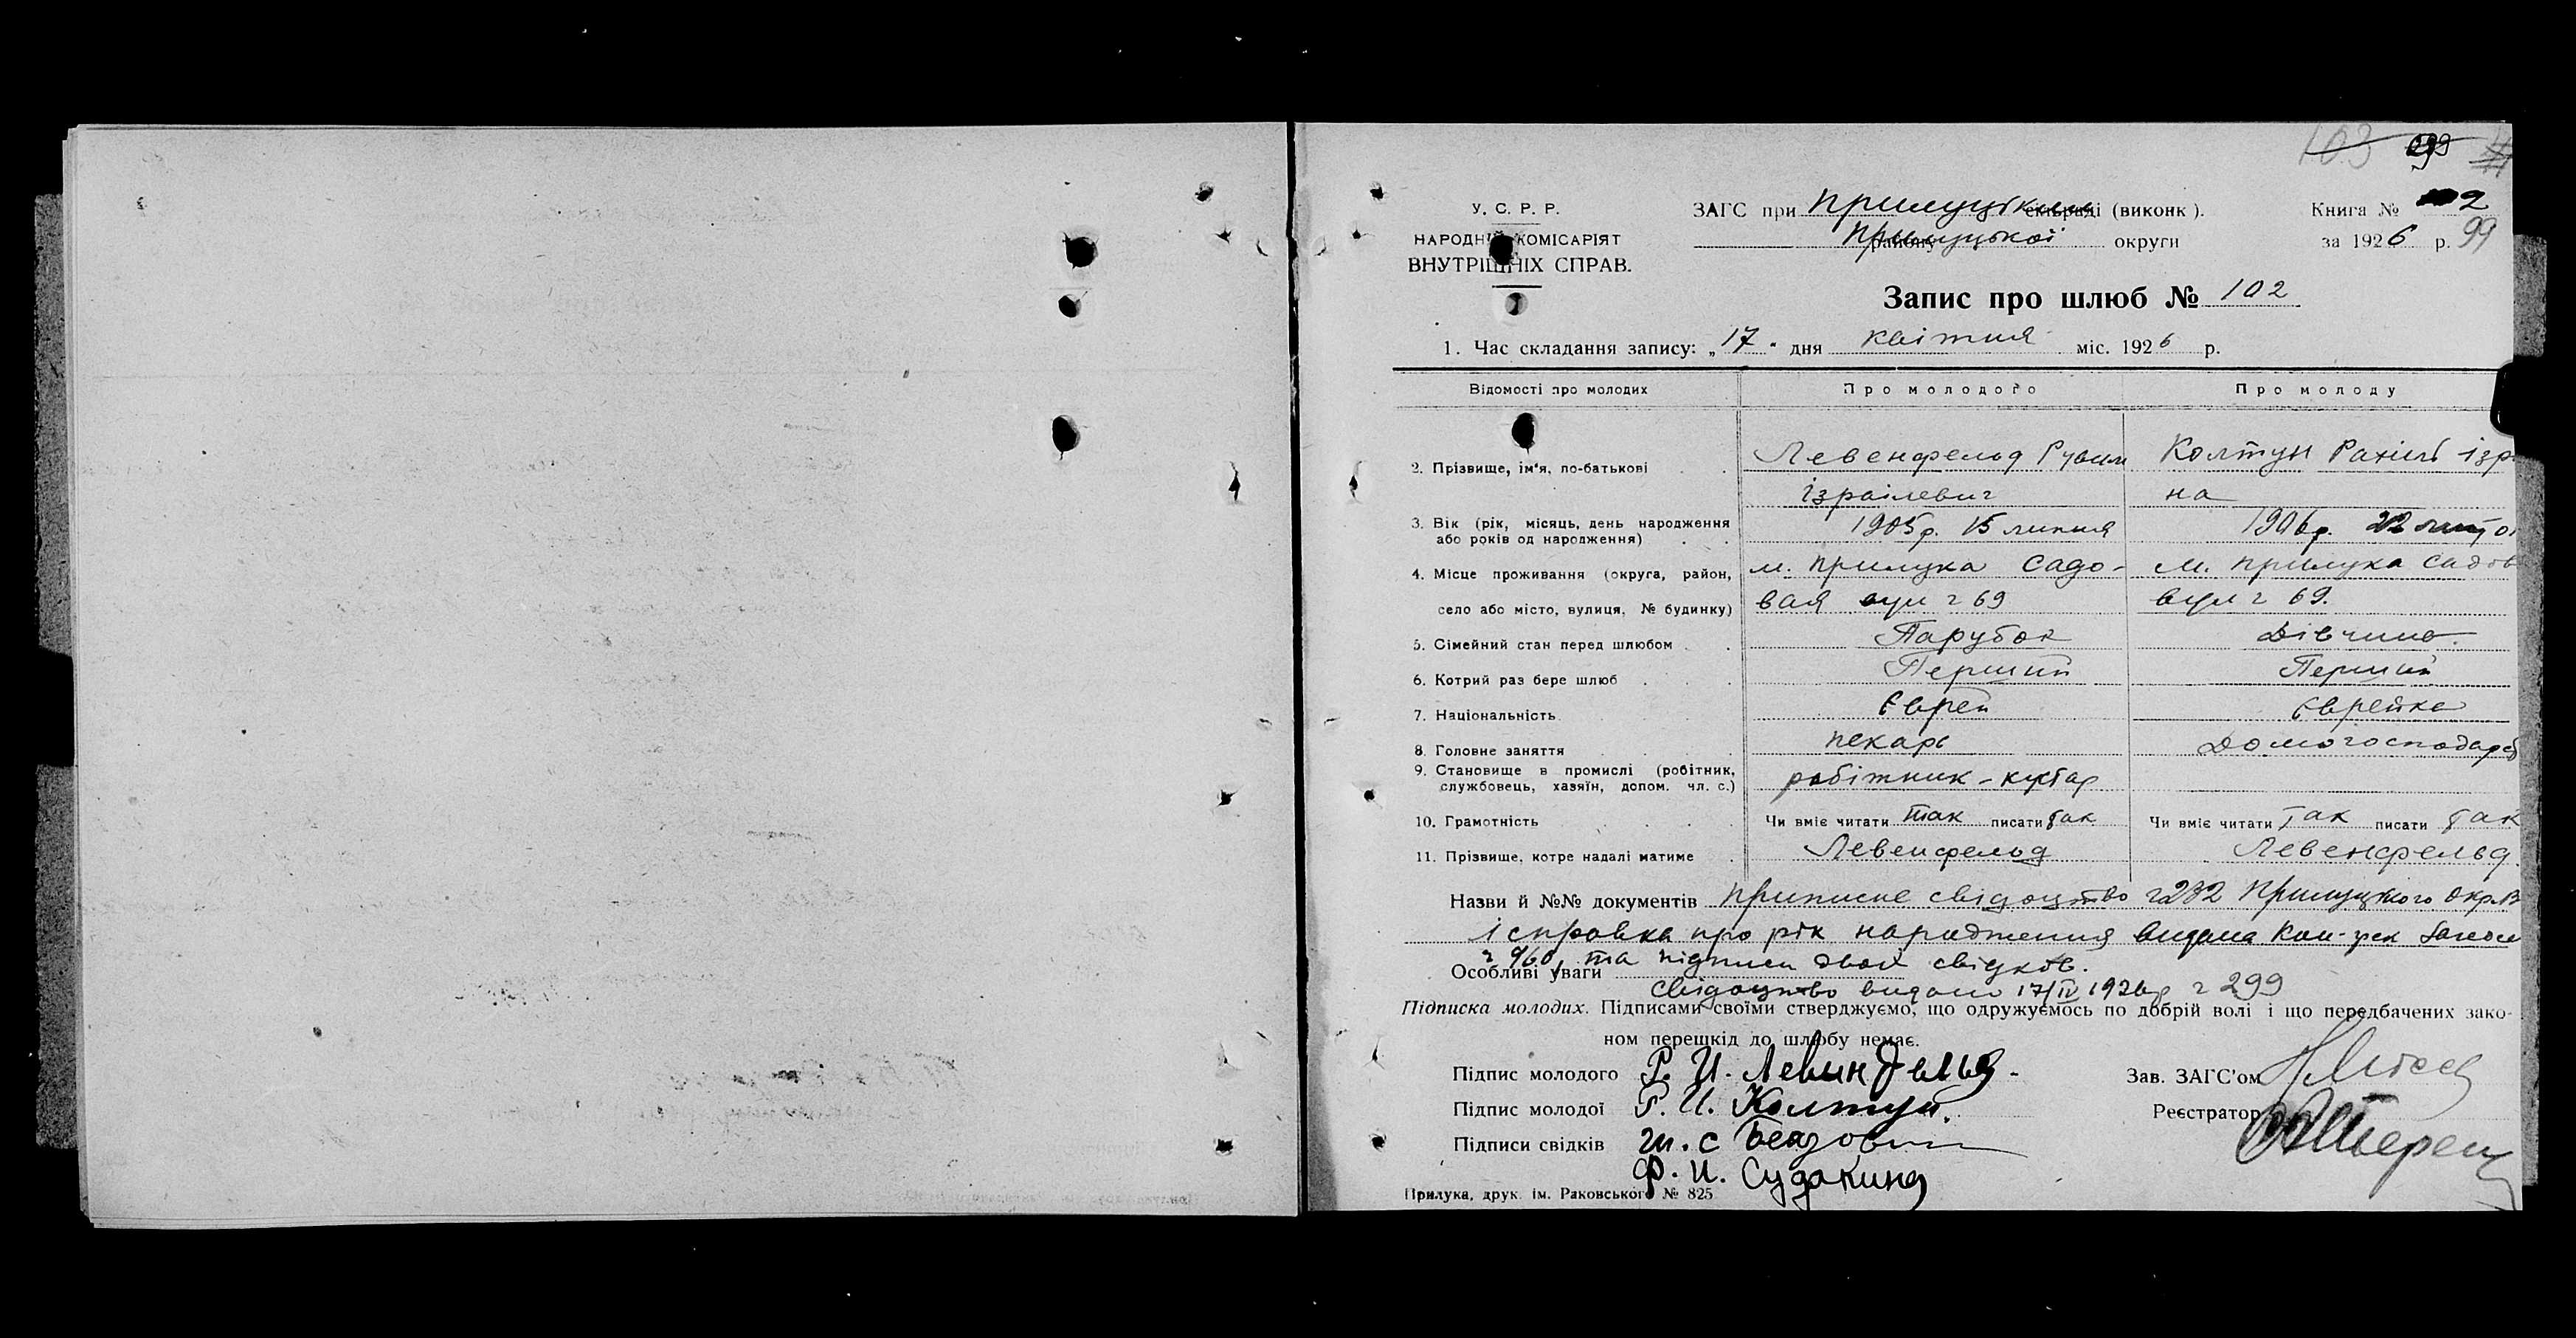 103 99
У. С. Р. Р.
НАРОДНІЙ КОМІСАРІЯТ
ВНУТРІШНІХ СПРАВ.
ЗАГС при Прилуцькім сельраді (виконк).
району Прилуцької округи
Книга № 2
за 1926 р. 99
Запис про шлюб № 102
1. Час складання запису: „17" дня квітня міс. 1926 р.
Відомості про молодих Про молодого Про молоду
2. Прізвище, ім'я, по-батькові Левенфельд Рувим Ізраілевич Колтун Рахіль Ізр- на
3. Вік (рік, місяць, день народження або років од народження) 1905р. 15 липня 1906р. 22
4. Місце проживання (округа, район, село або місто, вулиця, № будинку) м. Прилука Садо- вая вул ч 69 м. Прилука Садов вул ч 69.
5. Сімейний стан перед шлюбом Парубок Дівчина.
6. Котрий раз бере шлюб Перший Перший
7. Національність Єврей Єврейка
8. Головне заняття пекарь Домогосподарс
9. Становище в промислі (робітник, службовець, хазяїн, допом. чл. с.) робітник-кустар
10. Грамотність Чи вміє читати так писати так Чи вміє читати так писати так
11. Прізвище, котре надалі матиме Левенфельд Левенфельд.
Назви й №№ документів Приписне свідоцтво ч 232 Прилуцького Окр.В
і справка про рік народження видана
ч 960, та підписи двох свідків.
Особливі уваги
Свідоцтво видано 17/IV 1926р ч 299
Підписка молодих. Підписами своїми стверджуємо, що одружуємось по добрій волі і що передбачених зако-
ном перешкід до шлюбу немає.
Підпис молодого Р. И. Левинфельд
Підпис молодої Р. И. Колтун.
Підписи свідків Ш. С
Ф. И. Судакина
Зав. ЗАГС'ом
Реєстратор
Прилука, друк. ім. Раковського № 825